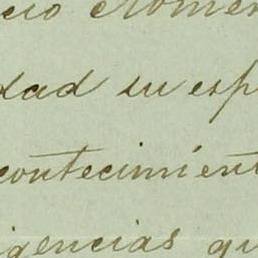 cio Romer
dad su esp
contecimient
igencias qu